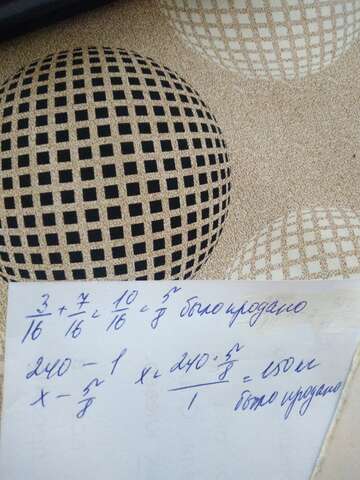 3/16 + 7/16 = 10/16 = 5/8 было продано
240 – 1
x – 5/8
x = 240 · 5/8 / 1 = 150 кг
было продано